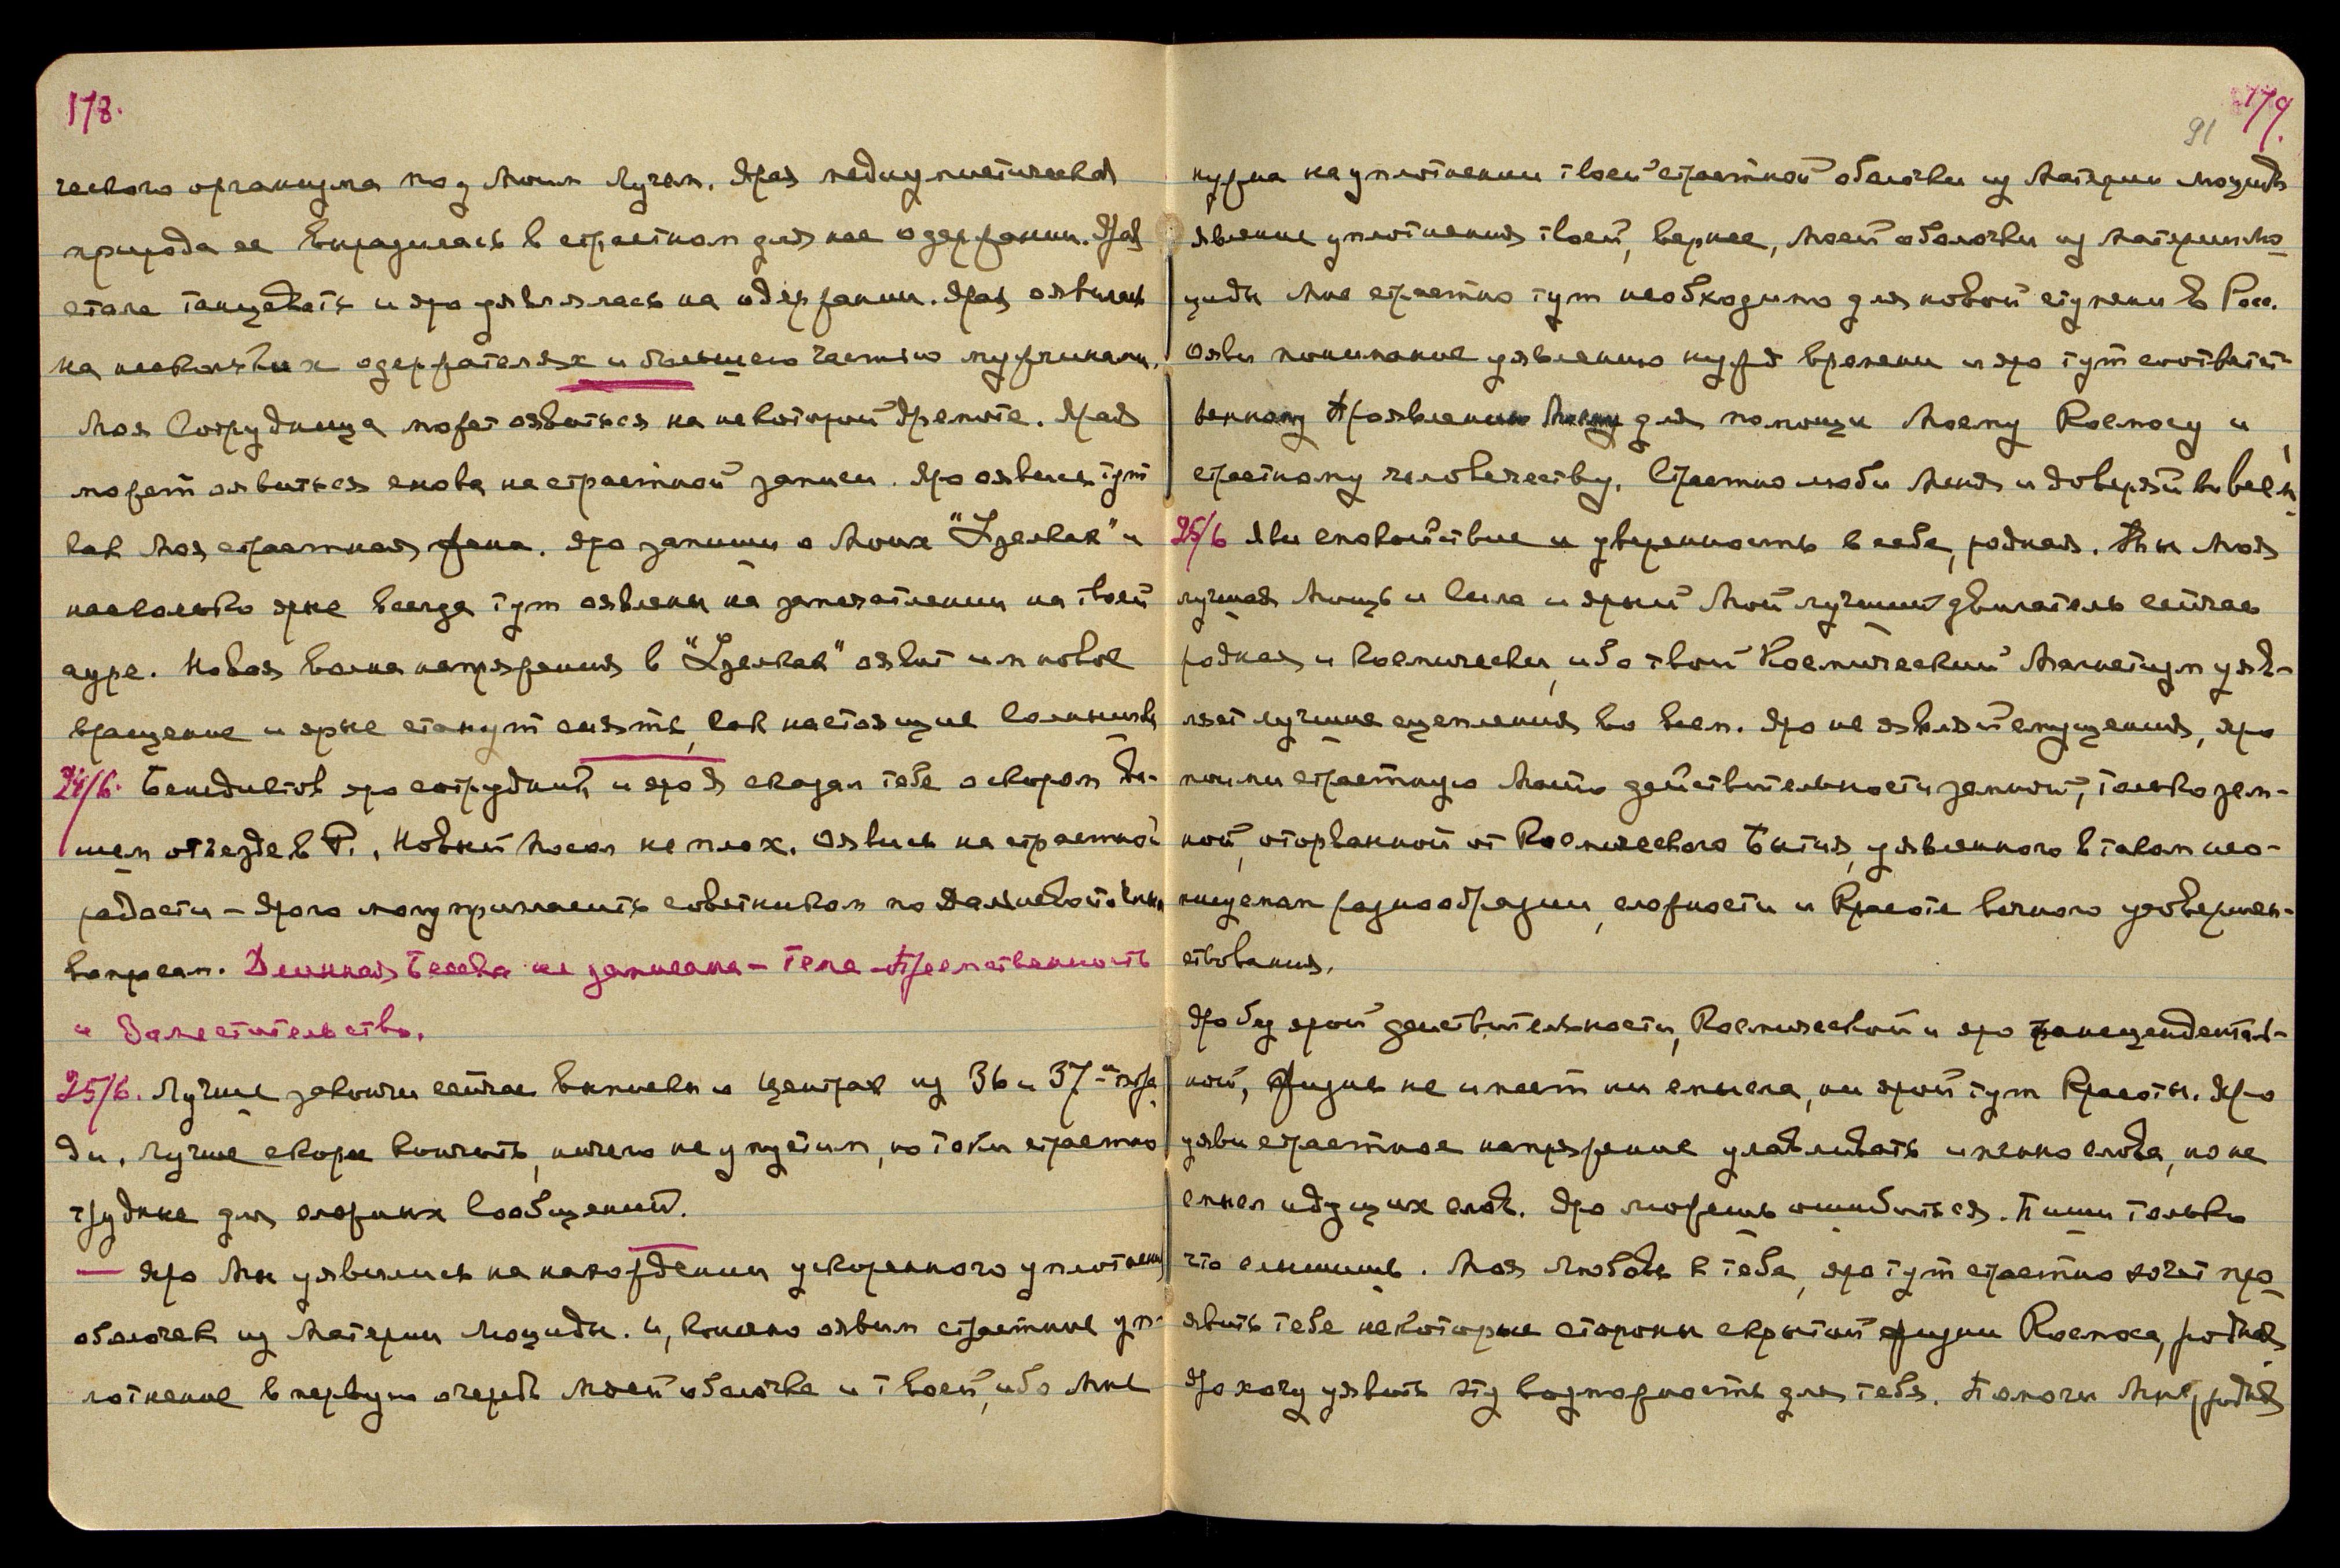 178.
ческого организма под Моим Лучем. Ярая медиумистическая
природа ее выразилась в страстном для нее одержании. Ярая
стала танцевать и яро уявлялась на одержании. Ярая оявилась
на нескольких одержателях и большею частью мужчинами.
Моя Сотрудница может оявиться на некоторой дремоте. Ярая
может оявиться снова на страстной записи. Яро оявись тут
как Моя страстная жена. Яро запиши о Моих и
насколько ярые всегда тут оявлены на запечатлении на твоей
ауре. Новая волна напряжения в оявит им новое
вращение и ярые станут сиять, как настоящие Солнышки
24/6. Бенедиктов яро сотрудник, и яро Я сказал тебе о скором ва-
шем отъезде в Р., новый посол не плох. Оявись на страстной
радости – Ярого могу пригласить советником по Дальневосточным
вопросам. Длинная Беседа не записана – Тема – Преемственность
и Заместительство.
25/6. Лучше закончи сейчас выписки о центрах из 36 и 37-й тетра
ди. Лучше скорее кончить, ничего не упустим, но токи страстно
трудные для сложных Сообщений.
— Яро Мы уявились на нахождении ускоренного уплотнения
оболочек из Материи Люциды. И, конечно оявим страстное уп-
лотнение в первую очередь Моей оболочке и твоей, ибо Мне
179.
91
нужна на уплотнении твоей страстной оболочки из Материи Люцида
явление уплотнения твоей, вернее, Моей оболочки из Материи Лю
циды Мне страстно тут необходимо для новой ступени в Росс.
Ояви понимание уявлению нужд времени и яро тут соответст-
венному Проявлению Моему для помощи Моему Космосу и
страстному человечеству. Страстно люби Меня и доверяй во всем
25/6 Яви спокойствие и уверенность в себе, родная. Ты Моя
лучшая Мощь и Сила и ярый Мой лучший двигатель сейчас
родная и космически, ибо твой Космический Магнетизм уяв-
ляет лучшие сцепления во всем. Яро не являй смущения, яро
пойми страстную Майю действительности земной, только зем-
ной, оторванной от Космического Бытия, уявленного в таком нео-
писуемом разнообразии, сложности и Красоте вечного усовершен-
ствования.
Яро без ярой действительности, Космической и яро трансцендентал-
ной, Жизнь не имеет ни смысла, ни ярой тут Красоты. Яро
уяви страстное напряжение улавливать именно слова, но не
смысл идущих слов. Яро можешь ошибиться. Пиши только
что слышишь. Моя Любовь к тебе, яро тут страстно хочет про
явить тебе некоторые стороны скрытой жизни Космоса, родная
Яро хочу уявить эту возможность для тебя. Помоги Мне, родная